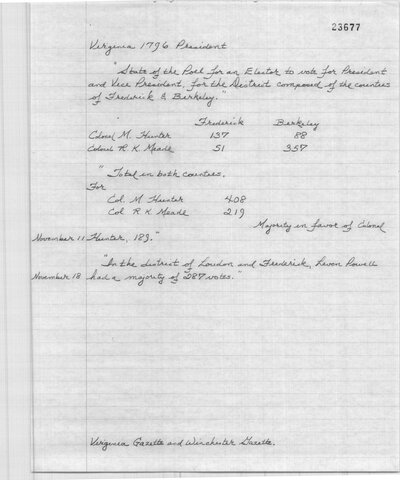 23677
Virginia 1796 President
"State of the Poll for an Elector to vote for President
and Vice President, for the District composed of the counties
of Frederick & Berkeley."
Frederick Berkeley
Colonel M. Hunter 137 88
Colonel R K Meade 51 357
"Total in both counties.
For
Col. M Hunter 408
Col R K Meade 219
Majority in favor of Colonel
November 11 Hunter, 189."
"In the district of Loudon and Frederick, Leven Powell
November 18 had a majority of "287 votes."
Virginia Gazette and Winchester Gazette.